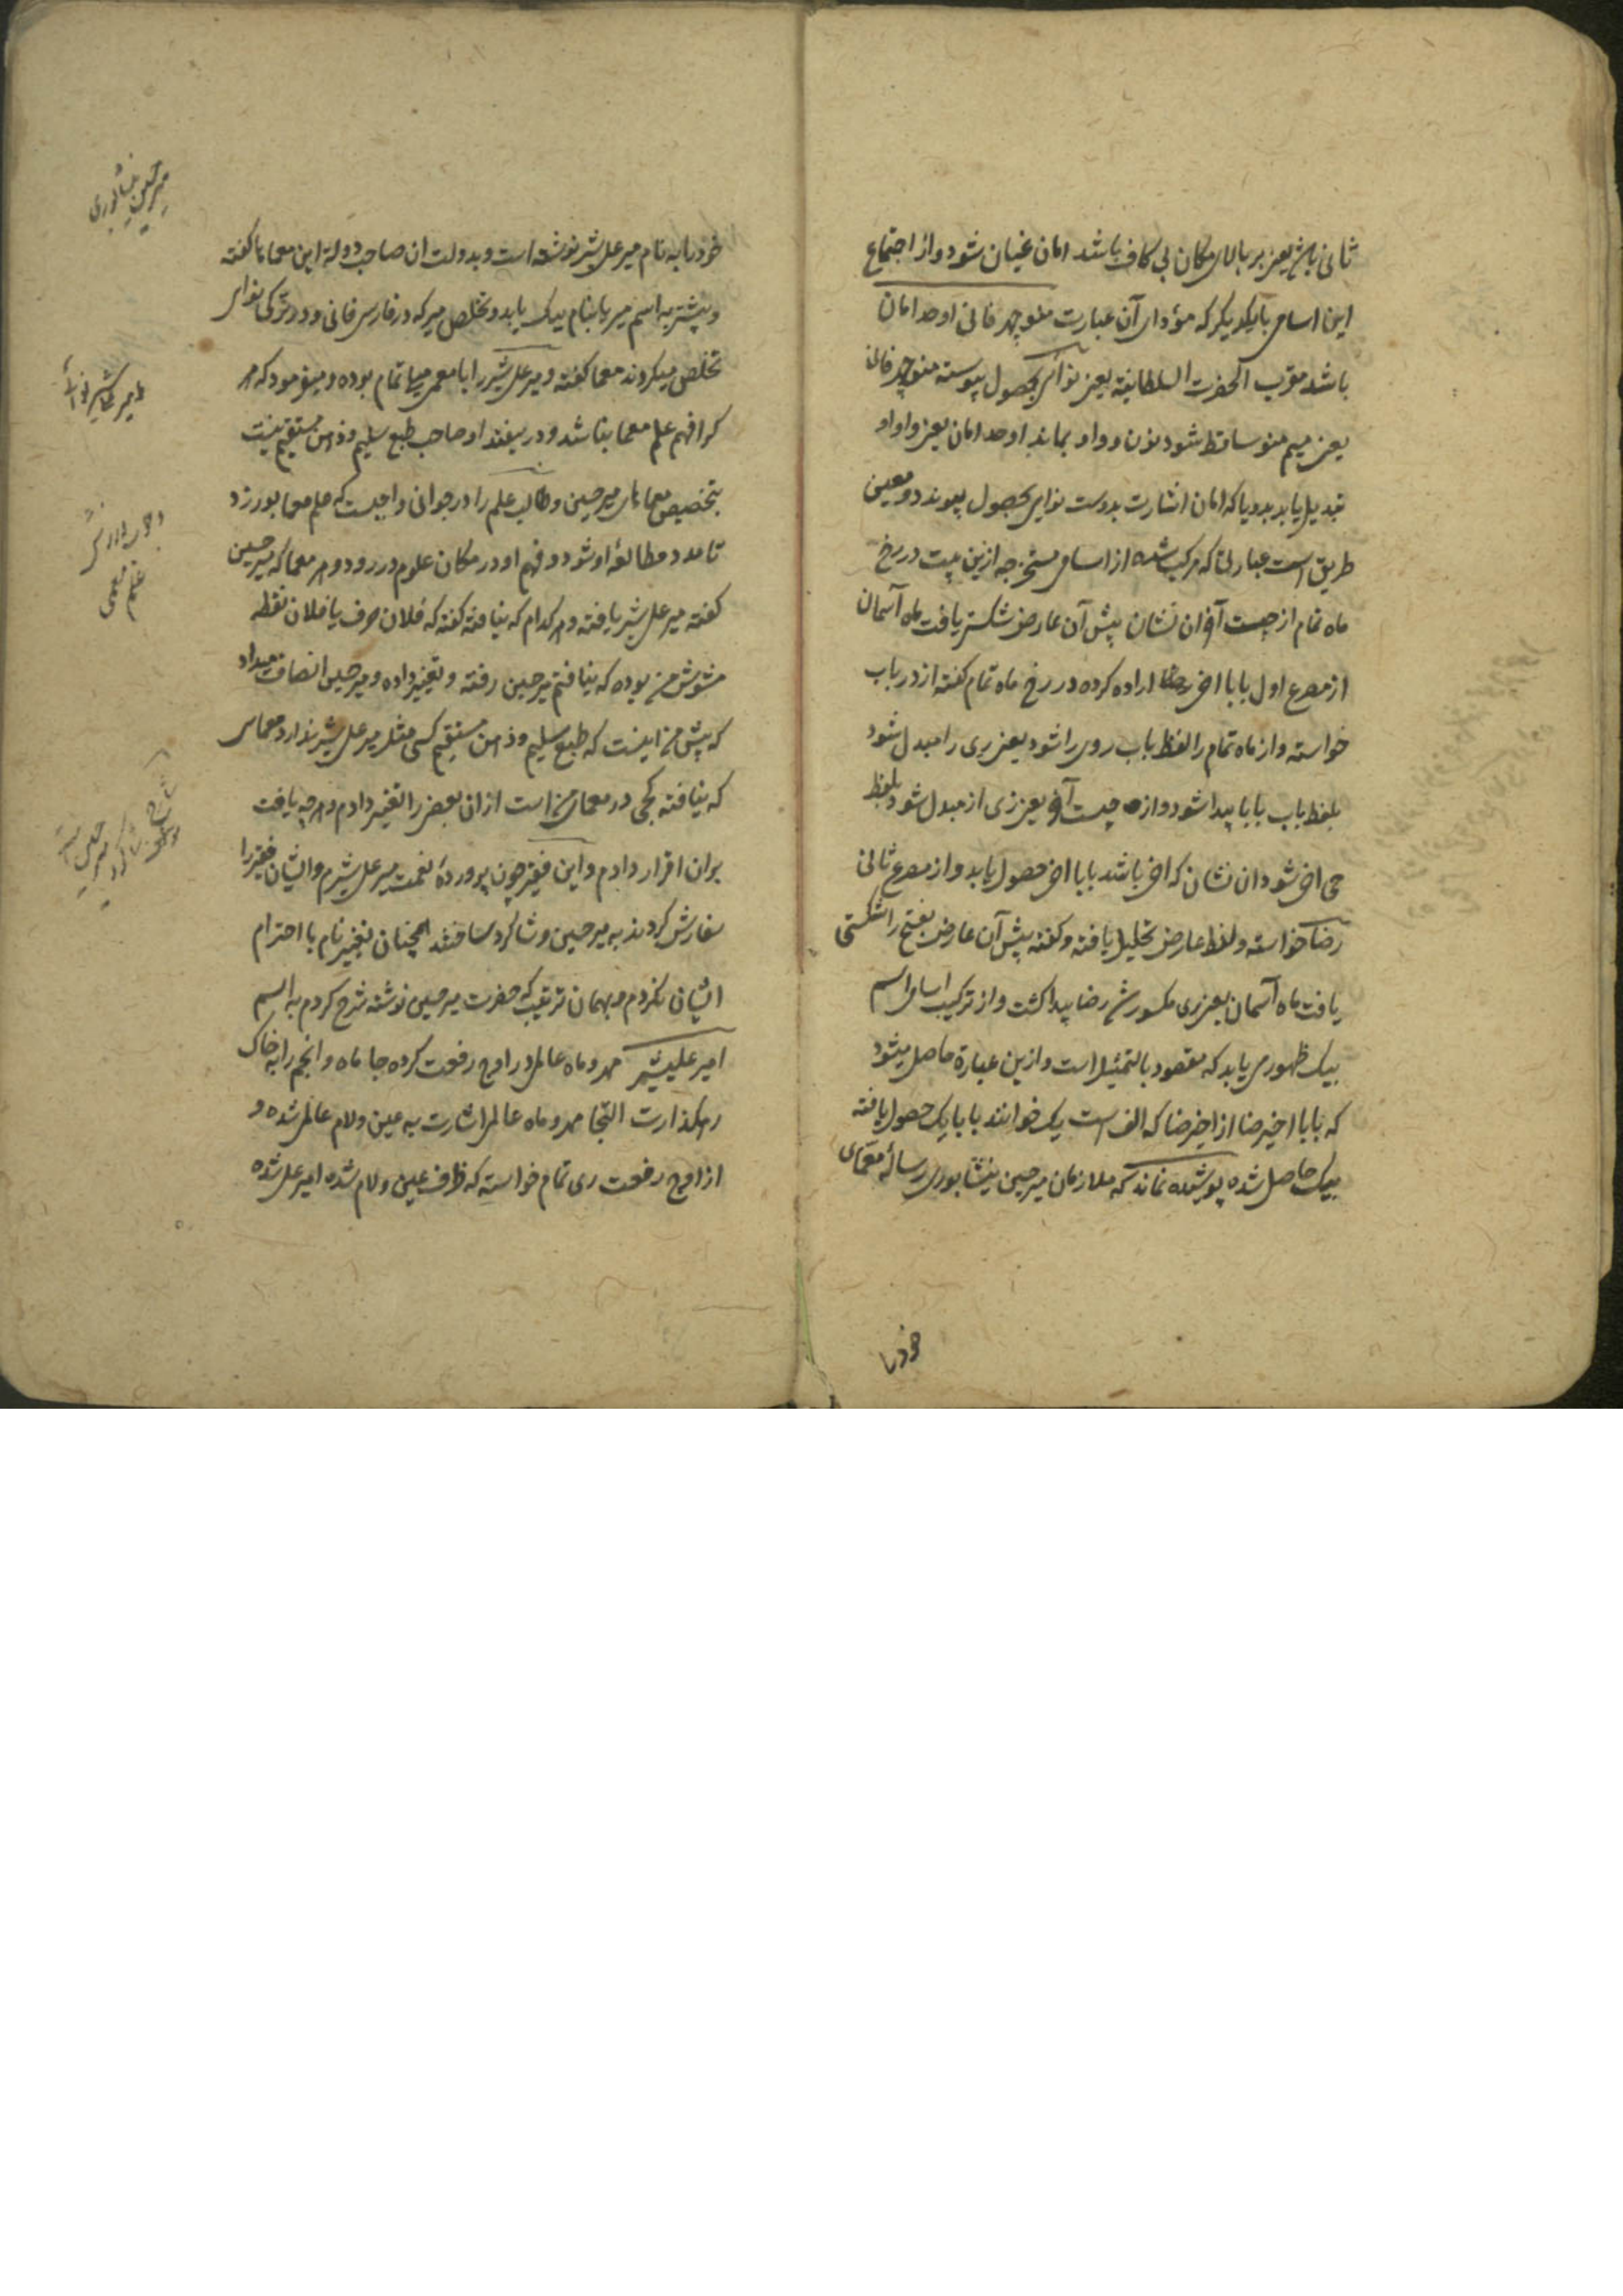 ثانی باش یعنی بر بالای مکان بی کاف باشد امان غنیان شود و از اجتماع
این اسامی بایکدیکر که مؤدای آن عبارت منوچهر فانی اوحد امان
باشد مقرب الحضرت السلطانیة یعنی نوائی بحصول پیوسته منوچهر فانی
یعنی میم منو ساقط شود نون و واو بماند اوحد امان یعنی واو او
تبدیل یابد بدو یا که امان اشارت بدوست نوایی بحصول پیوندد و معین
طریق است عبارتی که مرکب شده از اسامی مستخرجه ازین بیت در رخ
ماه تمام از چیست آخر ان نشان پیش آن عارض شکستی یافت ماه آسمان
از مصرع اول بابا اخی رضا اراده کرده در رخ ماه تمام کفته از در باب
خواسته و از ماه تمام را لفظ باب روی را شود یعنی ری را مبدل شود
بلفظ باب بابا پیدا شود و از چیست آخر یعنی زی از مبدل شود بلفظ
خی اخی شود ان نشان که اخی باشد بابا اخی حصول یابد و از مصرع ثانی
رضا خواسته و لفظ عارض تحلیل یافته و کفته پیش آن عارض بفتح را شکستی
یافت ماه آسمان یعنی ری مکسور شد رضا پیدا کشت و از ترکیب اسامی اسم
بیک ظهوری یابد که مقصود بالتمثیل است و ازین عبارة حاصل میشود
که بابا اخیر رضا از اخیر رضا که الف است یک خوانند بابا بیک حصول یافته
بیک حاصل شده پوشیده نماند که ملازمان میر حسین نیشابوری رسالۀ معمای
خود را
خود را به نام میر علی شیر نوشته است و بدولت ان صاحب دولة این معماها کفته
و پیشتر به اسم میر یا بنام بیک یابد و تخلص میر که در فارسی فانی و در ترکی نوای
تخلص میکردند معما کفته و میر علی شیر را با معمی میلی تمام بوده و میفرمود که هر
کرا فهم علم معما نباشد و در بیفتد او صاحب طبع سلیم و ذهن مستقیم نیست
بتخصیص معماهای میر حسین و طالب علم را در جوانی واجبست که علم معما بورزد
تا مدد مطالعۀ او شود و فهم او در مکان علوم در رود و هر معما که میر حسین
کفته میر علی شیر یافته و هر کدام که نیافته کفته که فلان حرف یا فلان نقطه
مشوش من بوده که نیافتم میر حسین رفته و تغییر داده و میر حسین انصاف میداد
که پیش من اینست که طبع سلیم و ذهن مستقیم کسی مثل میر علی شیر ندارد معمای
که نیافته کجی در معمای من است ازان بعضی را تغییر دادم و هر چه یافت
بران اقرار دادم و این فقیر چون پروردۀ نعمت میر علی شیرم و ایشان فقیر را
سفارش کردند به میر حسین و شاکرد ساختند همچنان بتغییر نام با احترام
ایشان نکردم و بهمان ترتیب که حضرت میر حسین نوشته شرح کردم به اسم
امیر علیشیر مهر و ماه عالم در اوج رفعت کرده جا ماه و انجم را به خاک
رهکذارت التجا مهر و ماه عالم اشارت به عین و لام عالم شده و
از اوج رفعت ری تمام خواسته که ظرف عین و لام شده امیر علی شده
میر حسین نیشابوری
امیر علیشیر نوائی
علم معمی